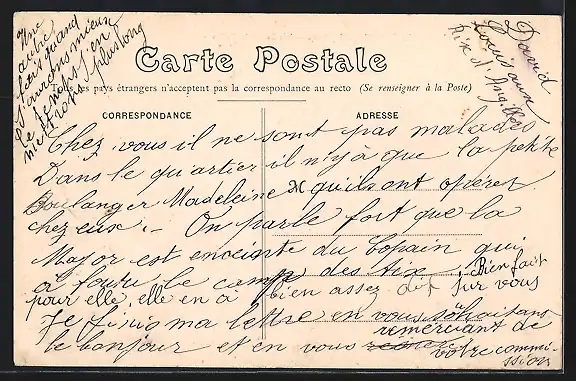 Une
autre
fois quand
j'aurons mieux
le temps j'en
mettrons plus long
David
Louis aux
Rix d'Angilles
Carte Postale
Tous les pays étrangers n'acceptent pas la correspondance au recto (Se renseigner à la Poste)
CORRESPONDANCE ADRESSE
Chez vous il ne sont pas malades
Dans le quartier il n'y à que la petite
Boulanger Madeleine qu'ils ont opérer
chez eux. - On parle fort que la
Major est enceinte du Copain qui
à foutu le camp des aix, Bien fait
pour elle, elle en à bien assez dit sur vous
Je finis ma lettre en vous sohaitans
le bonjour et en vous remerciant de
votre commi-
ssion